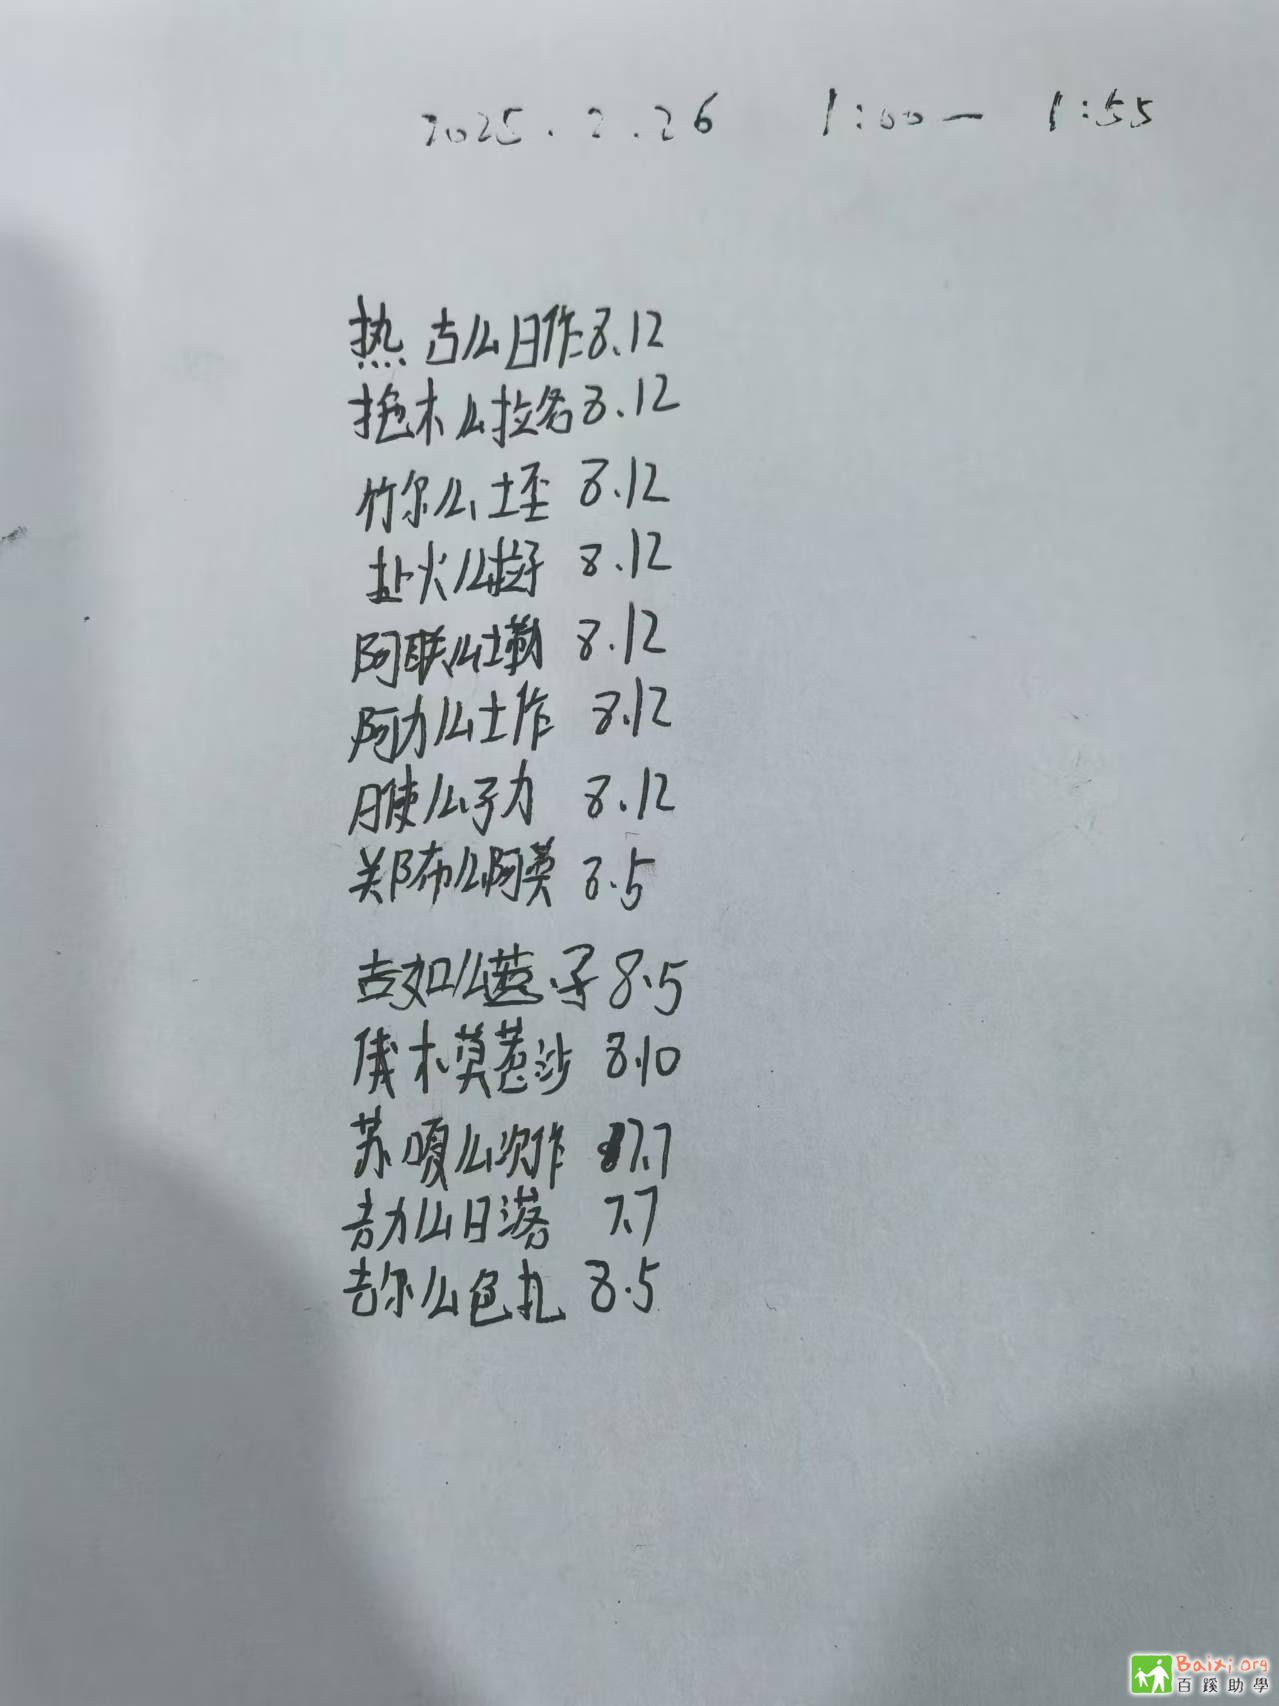 2025.2.26 1:00— 1:55
热古么日作8.12
抱木么拉名8.12
竹尔么土丕 8.12
赴火么拉子 8.12
阿联么土勒 8.12
阿力么土作 8.12
么子力 8.12
郑布么阿英 8.5
吉如么惹子8.5
俄木莫惹沙 8.10
苏嘎么次作 7.7
吉力么日落 7.7
吉尔么色扎 8.5
Baixi.org
百蹊助學